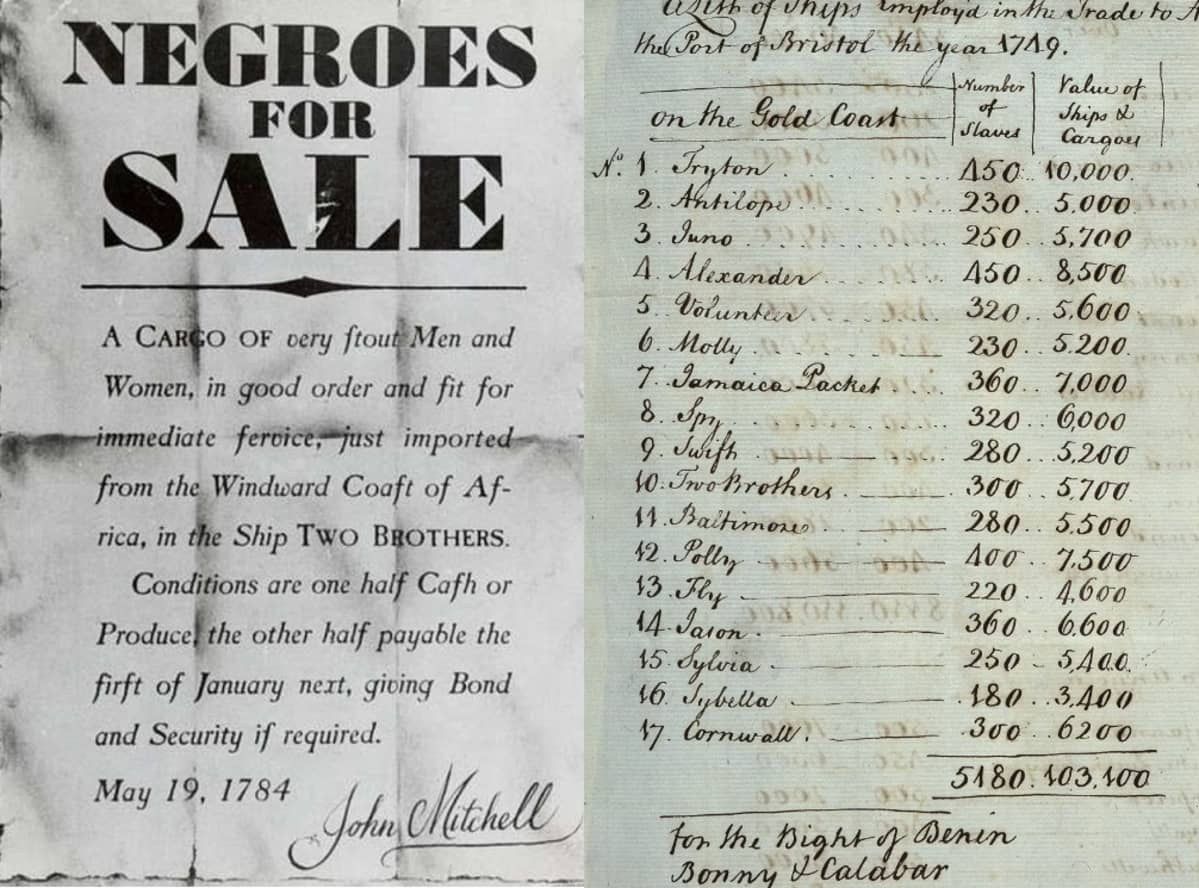 NEGROES
FOR
SALE
A CARGO OF very ſtout Men and
Women, in good order and fit for
immediate ſervice, just imported
from the Windward Coaſt of Af-
rica, in the Ship TWO BROTHERS.
Conditions are one half Caſh or
Produce, the other half payable the
firſt of January next, giving Bond
and Security if required.
May 19, 1784
John Mitchell
A List of Ships Employ'd in the Trade to
the Port of Bristol the year 1749.
on the Gold Coast
Number
of
Slaves
Value of
Ships &
Cargoes
No. 1. Tryton 450 10,000
2. Antilope 230 5,000
3. Juno 250 5,700
4. Alexander 450 8,500
5. Volunteer 320 5,600
6. Molly 230 5,200
7. Jamaica Packet 360 7,000
8. Spy 320 6,000
9. Swift 280 5,200
10. Two Brothers 300 5,700
11. Baltimore 280 5,500
12. Polly 400 7,500
13. Fly 220 4,600
14. Jason 360 6,600
15. Sylvia 250 5,400
16. Sybella 180 3,400
17. Cornwall. 300 6200
5180. 103,100
for the Bight of Benin
Bonny & Calabar